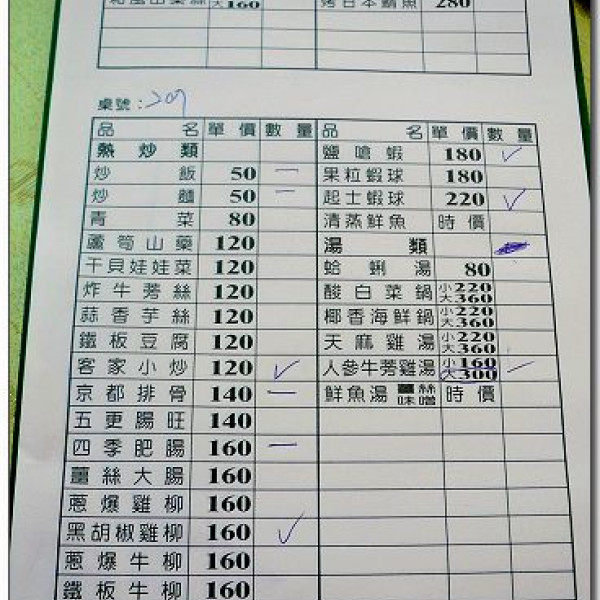 大160 烤日本鯖魚 280
桌號：209
品名 單價 數量 品名 單價 數量
熱炒類 鹽嗆蝦 180 ✓
炒飯 50 一 果粒蝦球 180
炒麵 50 一 起士蝦球 220 ✓
青菜 80 清蒸鮮魚 時價
蘆筍山藥 120 湯類
干貝娃娃菜 120 蛤蜊湯 80
炸牛蒡絲 120 酸白菜鍋 小220 大360
蒜香芋絲 120 椰香海鮮鍋 小220 大360
鐵板豆腐 120 天麻雞湯 小220 大360
客家小炒 120 ✓ 人參牛蒡雞湯 小160 大300 一
京都排骨 140 一 鮮魚湯 薑絲 味噌 時價
五更腸旺 140
四季肥腸 160 一
薑絲大腸 160
蔥爆雞柳 160
黑胡椒雞柳 160 ✓
蔥爆牛柳 160
鐵板牛柳 160